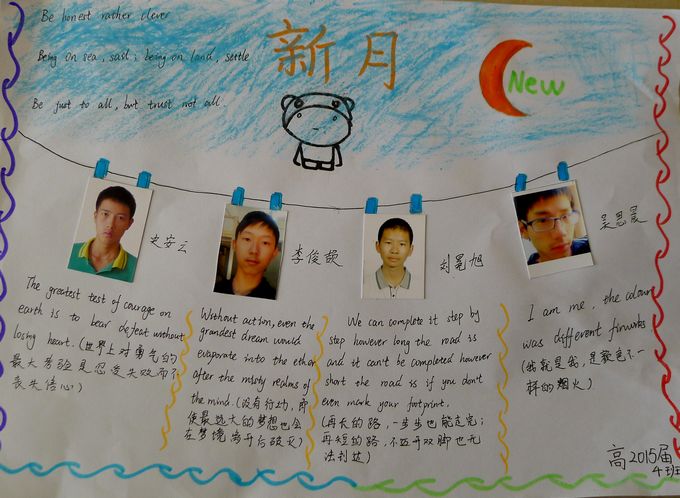 Be honest rather clever
Being on sea, sail; being on land, settle
Be just to all, but trust not all.
新月
New
史安云
The greatest test of courage on
earth is to bear defeat without
losing heart. (世界上对勇气的
最大考验是忍受失败而不
丧失信心)
李俊颉
Without action, even the
grandest dream would
evaporate into the ether
after the misty realms of
the mind. (没有行动, 即
使最远大的梦想也会
在梦境离开后破灭)
刘冕旭
We can complete it step by
step however long the road is
and it can't be completed however
short the road is if you don't
even mark your footprint.
(再长的路, 一步步也能走完;
再短的路, 不迈开双脚也无
法到达)
吴思晨
I am me, the colour
was different fireworks
(我就是我, 是颜色不一
样的烟火)
高2015届
4班